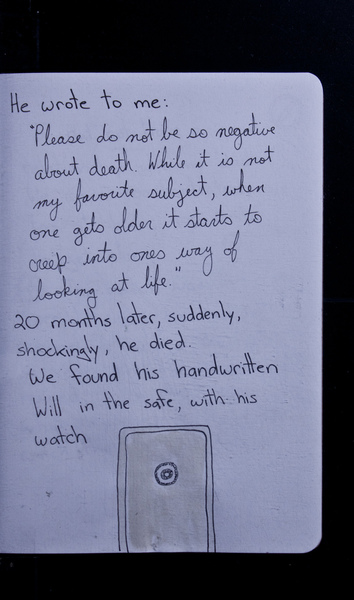 He wrote to me:
"Please do not be so negative
about death. While it is not
my favorite subject, when
one gets older it starts to
creep into ones way of
looking at life."
20 months later, suddenly,
shockingly, he died.
We found his handwritten
Will in the safe, with his
watch